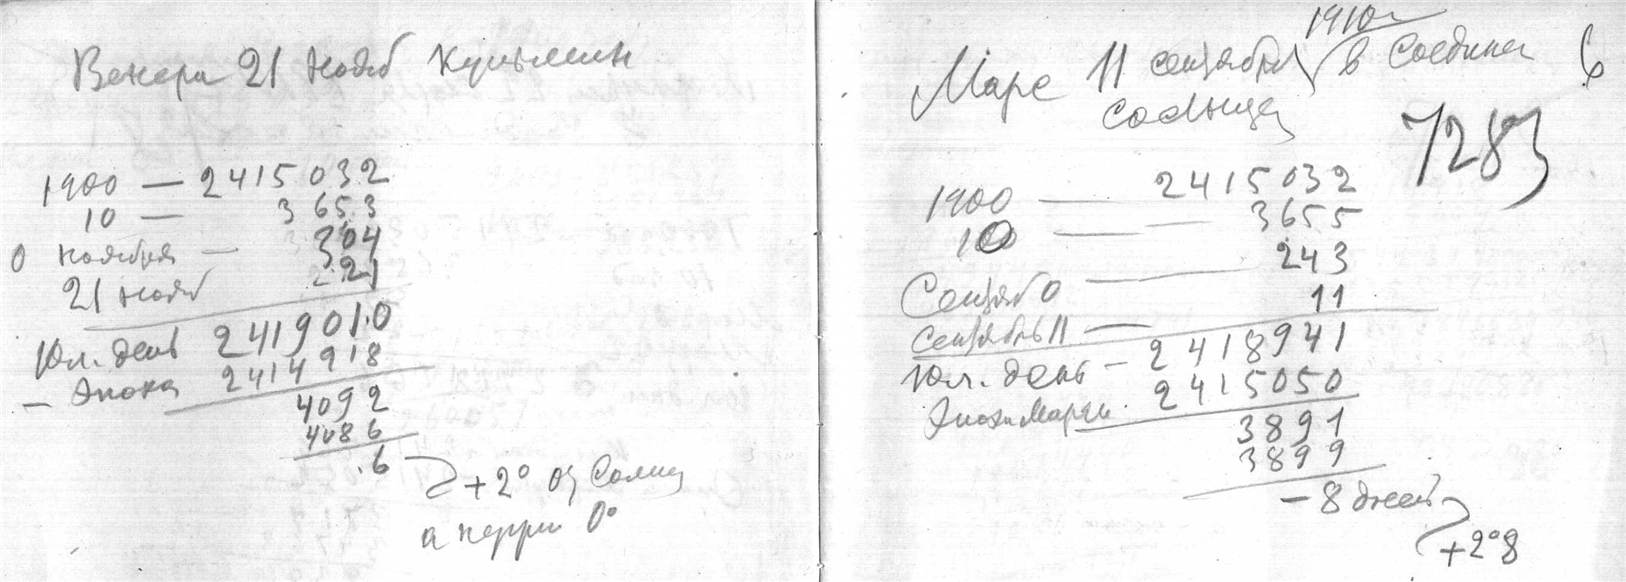 Венера 21 нояб Кульмин
1900 — 2415032
10 — 3653
0 ноября — 304
21 нояб 21
Юл. день 2419010
— Эпоха 2414918
4092
4086
6
+2° от Солнц
а 0°
1910
Марс 11 сентября в Соедине с
Солнцем
7283
1900 — 2415032
10 — 3655
Сентяб 0 — 243
Сентябрь 11 — 11
Юл. день — 2418941
Эпоха Марса 2415050
3891
3899
— 8 дней
+2°8